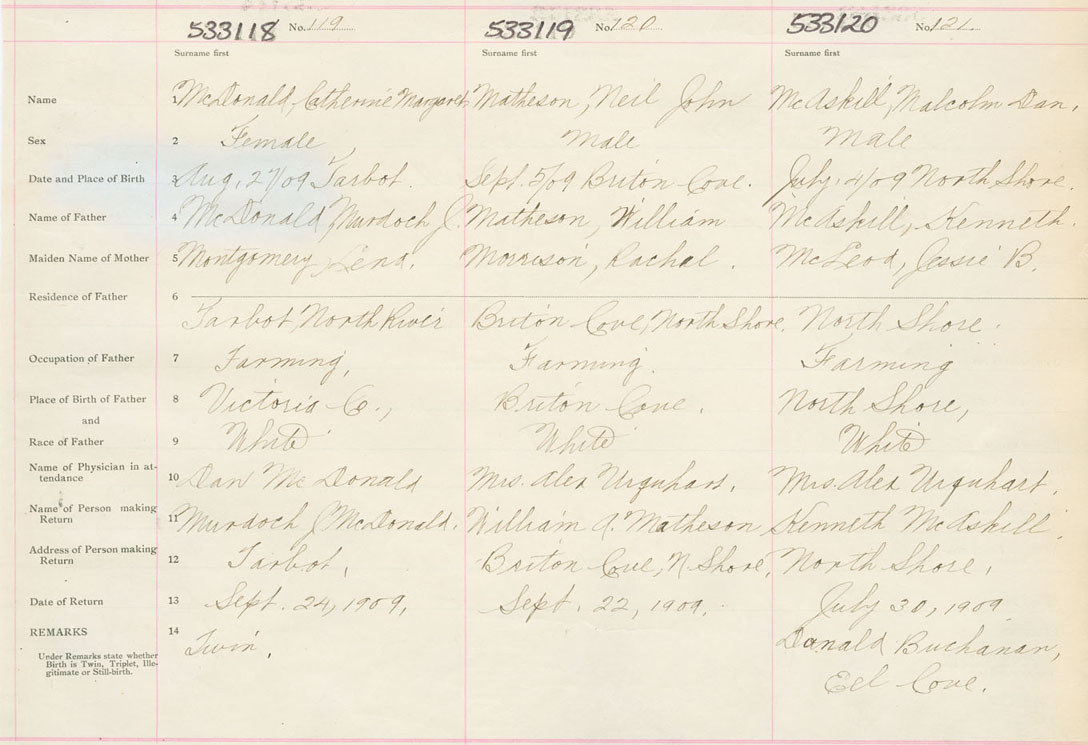 533118 No. 119 533119 No. 120 533120 No. 121
Surname first Surname first Surname first
Name 1 McDonald, Catherine Margaret Matheson, Neil John McAskill, Malcolm Dan.
Sex 2 Female Male Male
Date and Place of Birth 3 Aug. 27/09 Tarbot. Sept. 5/09 Briton Cove. July 4/09 North Shore.
Name of Father 4 McDonald, Murdoch J. Matheson, William McAskill, Kenneth.
Maiden Name of Mother 5 Montgomery, Lena. Morrison, Rachal. McLeod, Jessie B.
Residence of Father 6
Tarbot North River Briton Cove, North Shore. North Shore.
Occupation of Father 7 Farming, Farming. Farming
Place of Birth of Father 8 Victoria Co., Briton Cove. North Shore,
and
Race of Father 9 White White White
Name of Physician in at-
tendance 10 Dan McDonald Mrs. Alex Urquhart. Mrs. Alex Urquhart.
Name of Person making
Return 11 Murdoch J McDonald. William A. Matheson Kenneth McAskill.
Address of Person making
Return 12 Tarbot, Briton Cove, N Shore, North Shore,
Date of Return 13 Sept. 24, 1909, Sept. 22, 1909. July 30, 1909
REMARKS 14 Twin, Donald Buchanan,
Under Remarks state whether
Birth is Twin, Triplet, Ille-
gitimate or Still-birth.
Eel Cove.